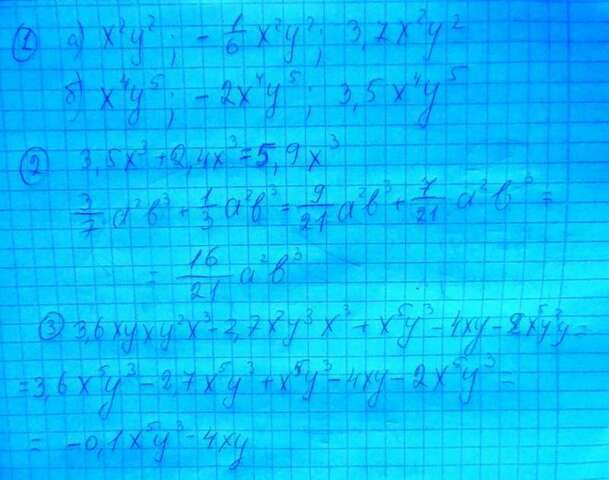 ① а) x²y²; -1/6 x²y²; 3,7x²y²
б) x⁴y⁵; -2x⁴y⁵; 3,5x⁴y⁵
② 3,5x³+2,4x³=5,9x³
3/7 a²b³+1/3 a²b³=9/21 a²b³+7/21 a²b³=
= 16/21 a²b³
③ 3,6xyxy²x³-2,7x²y³x³+x⁵y³-4xy-2x⁵y²y=
=3,6x⁵y³-2,7x⁵y³+x⁵y³-4xy-2x⁵y³=
= -0,1x⁵y³-4xy